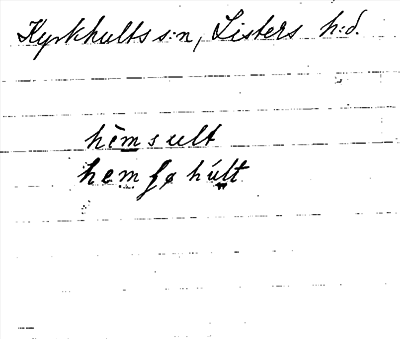 Kyrkhults s:n, Listers h:d.
hèmsult
hemʃahúlt